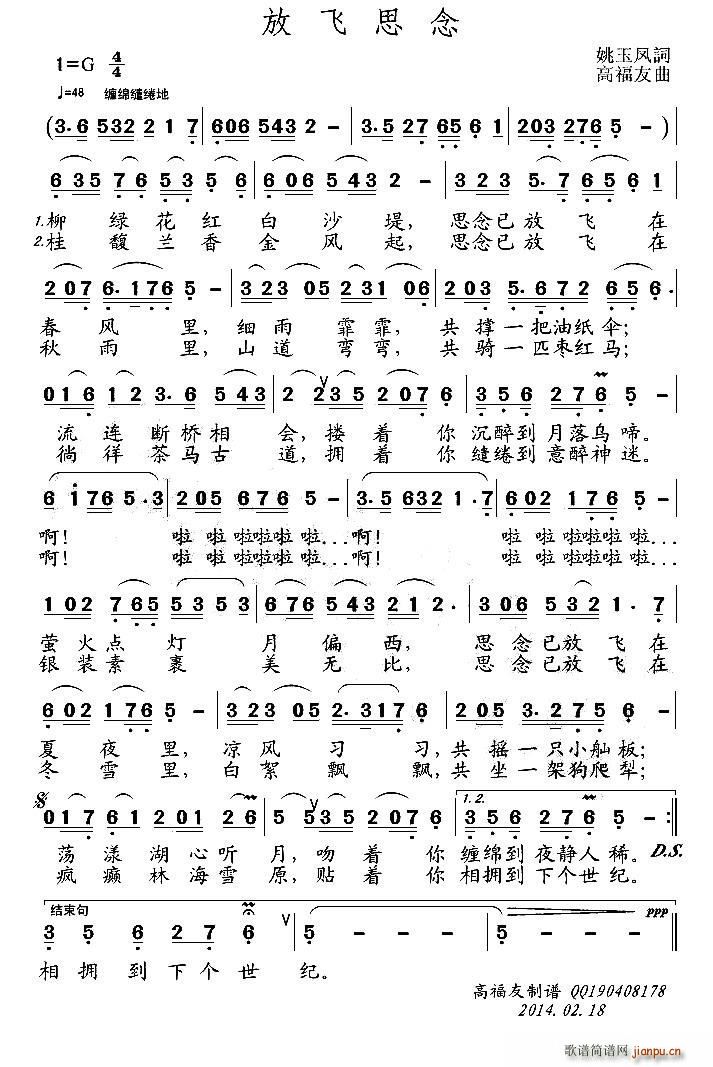 放飞思念
1=G 4/4
姚玉凤詞
高福友曲
♩=48 缠绵缱绻地
(3·6 532 2 1 7 | 606 543 2 - | 3·5 27 65 6 1 | 203 276 5 - )
635 76 53 5 6 | 606 543 2 - | 323 5·7 65 61
1.柳绿花红白沙堤，思念已放飞在
2.桂馥兰香金风起，思念已放飞在
207 6·176 5 - | 323 05 231 06 | 203 5·672 656·
春风里，细雨霏霏，共撑一把油纸伞；
秋雨里，山道弯弯，共骑一匹枣红马；
016 12 3·6 543 | 2 235 207 6 | 356 276 5 -
流连断桥相会，搂着你沉醉到月落乌啼。
徜徉茶马古道，拥着你缱绻到意醉神迷。
6 i765·3 | 205 676 5 - | 3·5 632 1·7 | 602 176 5 -
啊！啦啦啦啦啦啦...啊！啦啦啦啦啦啦...
啊！啦啦啦啦啦啦...啊！啦啦啦啦啦啦...
102 765 53 53 | 676 543 21 2· | 306 532 1·7
萤火点灯月偏西，思念已放飞在
银装素裹美无比，思念已放飞在
602 176 5 - | 323 05 2·317 6 | 205 3·275 6 -
夏夜里，凉风习习，共摇一只小舢板；
冬雪里，白絮飘飘，共坐一架狗爬犁；
017 61 201 26 | 5 535 207 6 | 1.2. 356 276 5 - :|
荡漾湖心听月，吻着你缠绵到夜静人稀。D.S.
疯癫林海雪原，贴着你相拥到下个世纪。
结束句 ppp
3 5 6 2 7 6 | 5 - - - | 5 - - -
相拥到下个世纪。
高福友制谱 QQ190408178
2014.02.18
歌谱简谱网 jianpu.cn